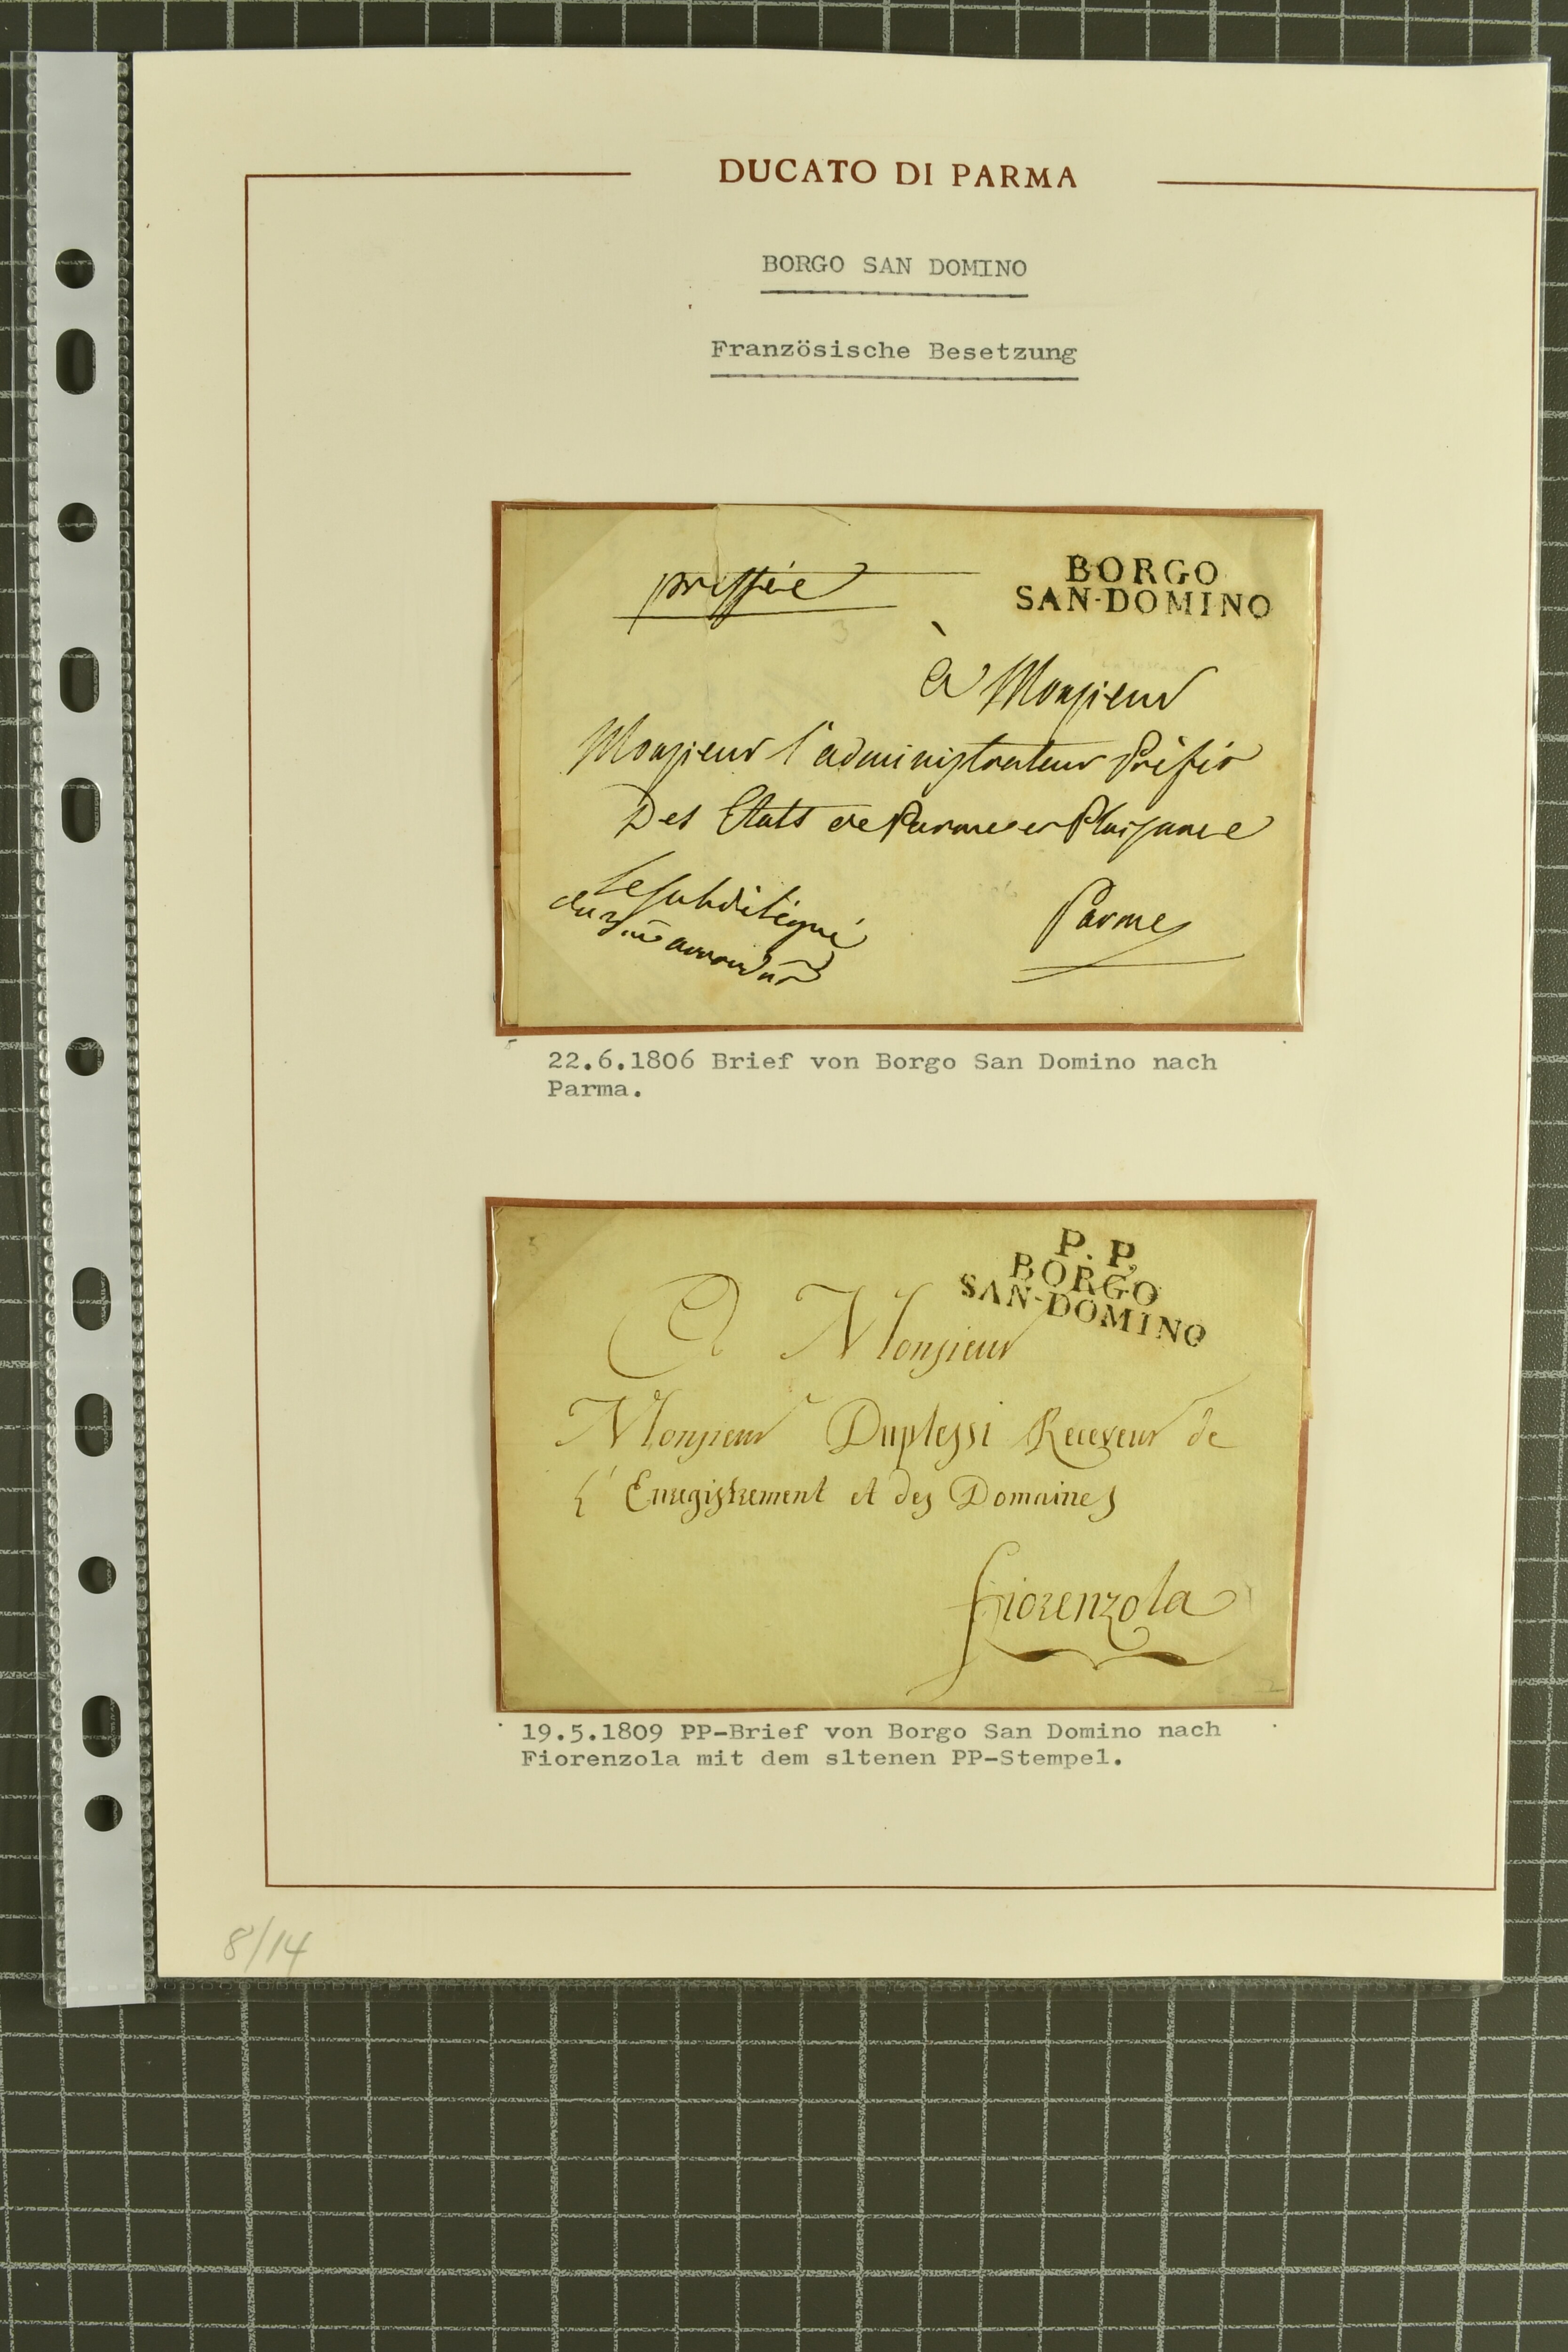 DUCATO DI PARMA
BORGO SAN DOMINO
Französische Besetzung
pressée
BORGO
SAN-DOMINO
à Monsieur
Monsieur l'administrateur Préfet
Des Etats de Parme et Plaisance
Le subdélégué
du 3me
Parme
22.6.1806 Brief von Borgo San Domino nach
Parma.
P. P.
BORGO
SAN-DOMINO
A Monsieur
Monsieur Duplessi Receveur de
L'Enregistrement et des Domaines
fiorenzola
19.5.1809 PP-Brief von Borgo San Domino nach
Fiorenzola mit dem sltenen PP-Stempel.
8/14